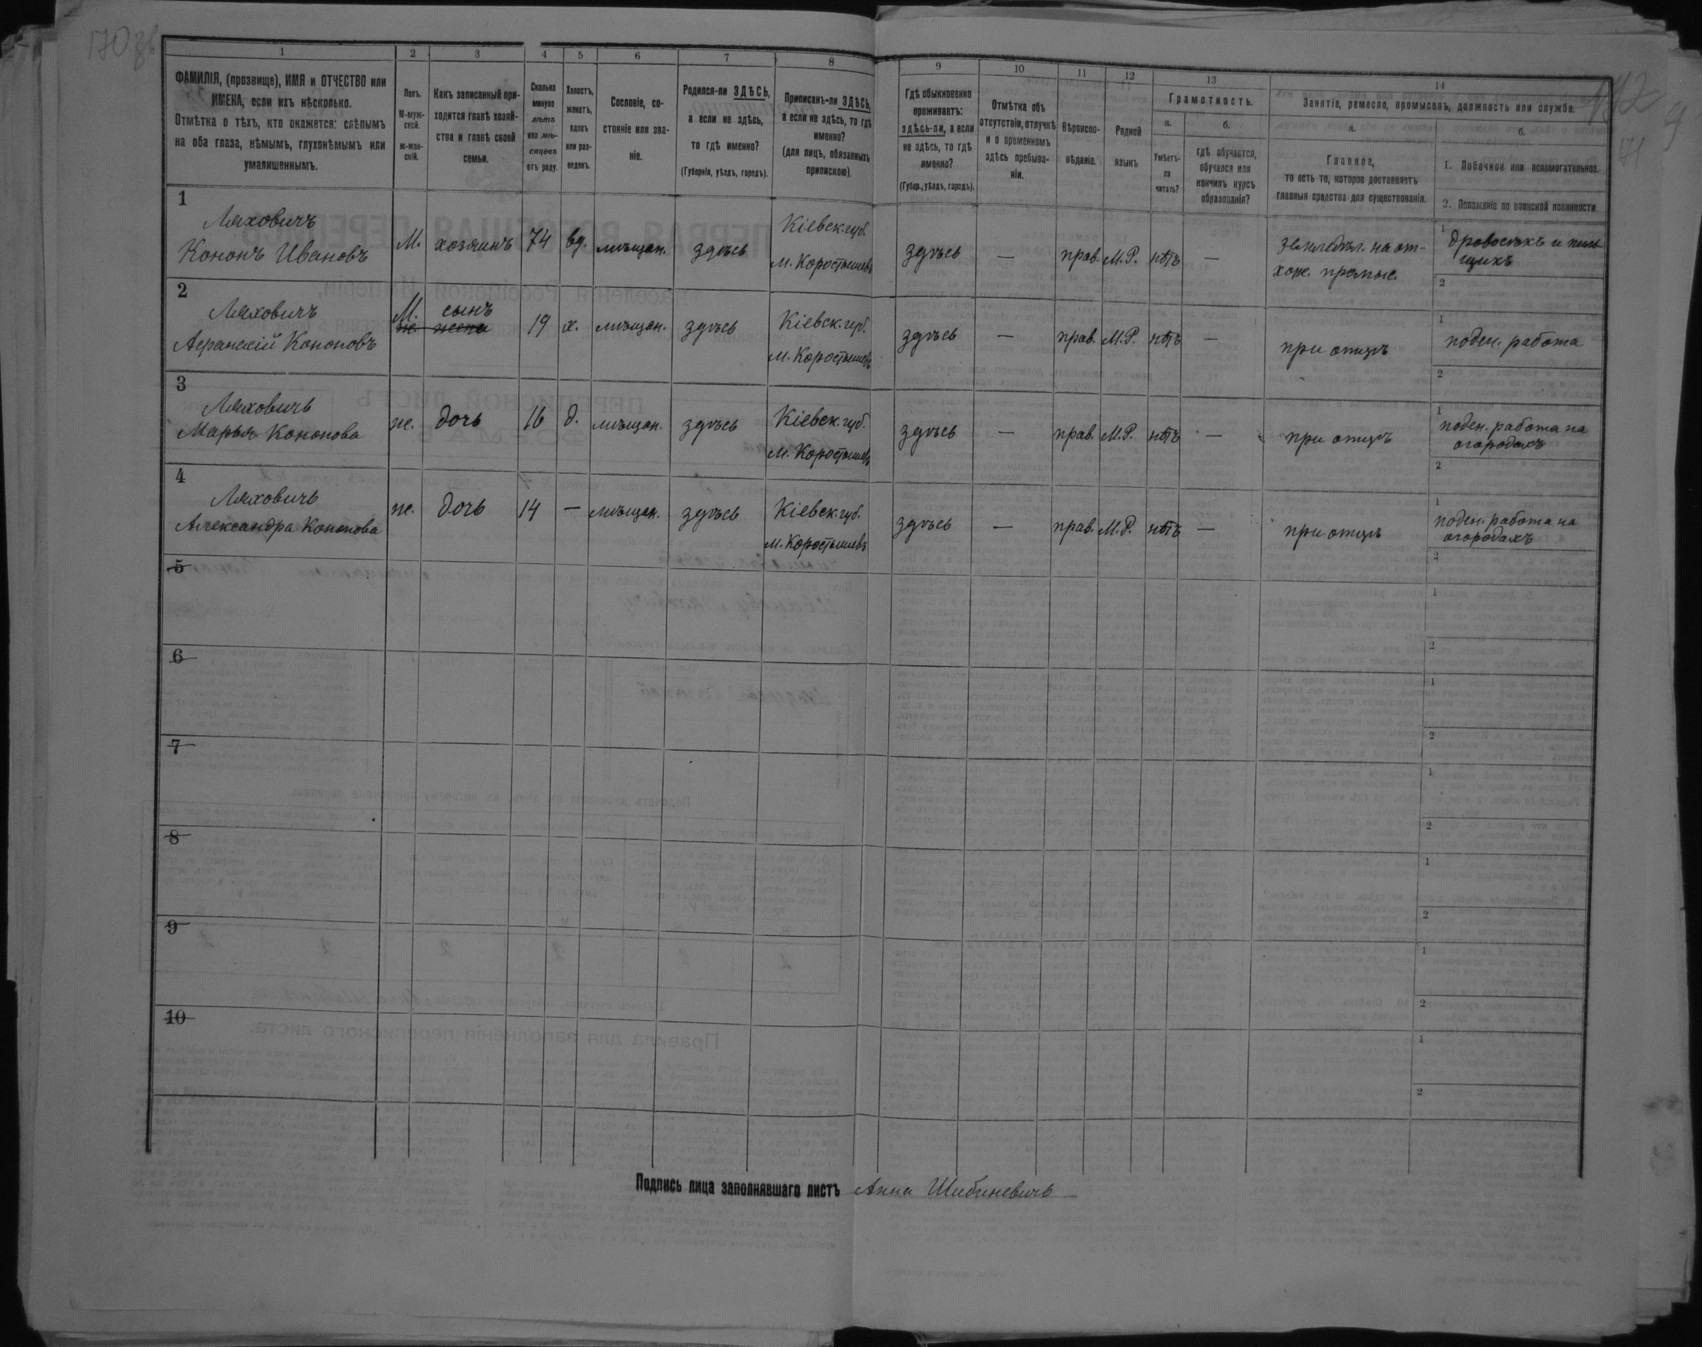 170 об
1 2 3 4 5 6 7 8 9 10 11 12 13 14
ФАМИЛІЯ, (прозвище), ИМЯ и ОТЧЕСТВО или
ИМЕНА, если ихъ нѣсколько.
Отмѣтка о тѣхъ, кто окажется: слѣпымъ
на оба глаза, нѣмымъ, глухонѣмымъ или
умалишеннымъ.
Полъ.
М-муж-
ской.
ж-жен-
скій.
Какъ записанный при-
ходится главѣ хозяй-
ства и главѣ своей
семьи.
Сколько
минуло
лѣтъ
или мѣ-
сяцевъ
отъ роду.
Холостъ,
женатъ,
вдовъ
или раз-
веденъ.
Сословіе, со-
стояніе или зва-
ніе.
Родился-ли ЗДѢСЬ,
а если не здѣсь,
то гдѣ именно?
(Губернія, уѣздъ, городъ).
Приписанъ-ли ЗДѢСЬ,
а если не здѣсь, то гдѣ
именно?
(для лицъ, обязанныхъ
припискою).
Гдѣ обыкновенно
проживаетъ:
здѣсь-ли, а если
не здѣсь, то гдѣ
именно?
(Губер., уѣздъ, городъ).
Отмѣтка объ
отсутствіи, отлучкѣ
и о временномъ
здѣсь пребыва-
ніи.
Вѣроиспо-
вѣданіе.
Родной
языкъ
Грамотность.
а.
Умѣетъ-
ли
читать?
б.
гдѣ обучается,
обучался или
кончилъ курсъ
образованія?
Занятіе, ремесло, промыселъ, должность или служба.
а.
Главное,
то есть то, которое доставляетъ
главныя средства для существованія.
б.
1. Побочное или вспомогательное.
2. Положеніе по воинской повинности.
1
Ляховичъ
Кононъ Ивановъ
М. хозяинъ 74 вд. мѣщан. здѣсь
Кіевск. губ.
м. Коростышевъ
здѣсь — прав. М.Р. нѣтъ —
земледѣл. на от-
хож. промыс.
1 дровосѣкъ и пиль
щикъ
2
2
Ляховичъ
Аѳанасій Кононовъ
М. сынъ
ж. жена
19 х. мѣщан. здѣсь
Кіевск. губ.
м. Коростышевъ
здѣсь — прав. М.Р. нѣтъ —
при отцѣ
1 поден. работа
2
3
Ляховичъ
Марья Кононова
ж. дочь 16 д. мѣщан. здѣсь
Кіевск. губ.
м. Коростышевъ
здѣсь — прав. М.Р. нѣтъ —
при отцѣ
1 поден. работа на
огородахъ
2
4
Ляховичъ
Александра Кононова
ж. дочь 14 — мѣщан. здѣсь
Кіевск. губ.
м. Коростышевъ
здѣсь — прав. М.Р. нѣтъ —
при отцѣ
1 поден. работа на
огородахъ
2
5
1
2
6
1
2
7
1
2
8
1
2
9
1
2
10
1
2
Подпись лица заполнявшаго листъ Анна Шибиневичъ